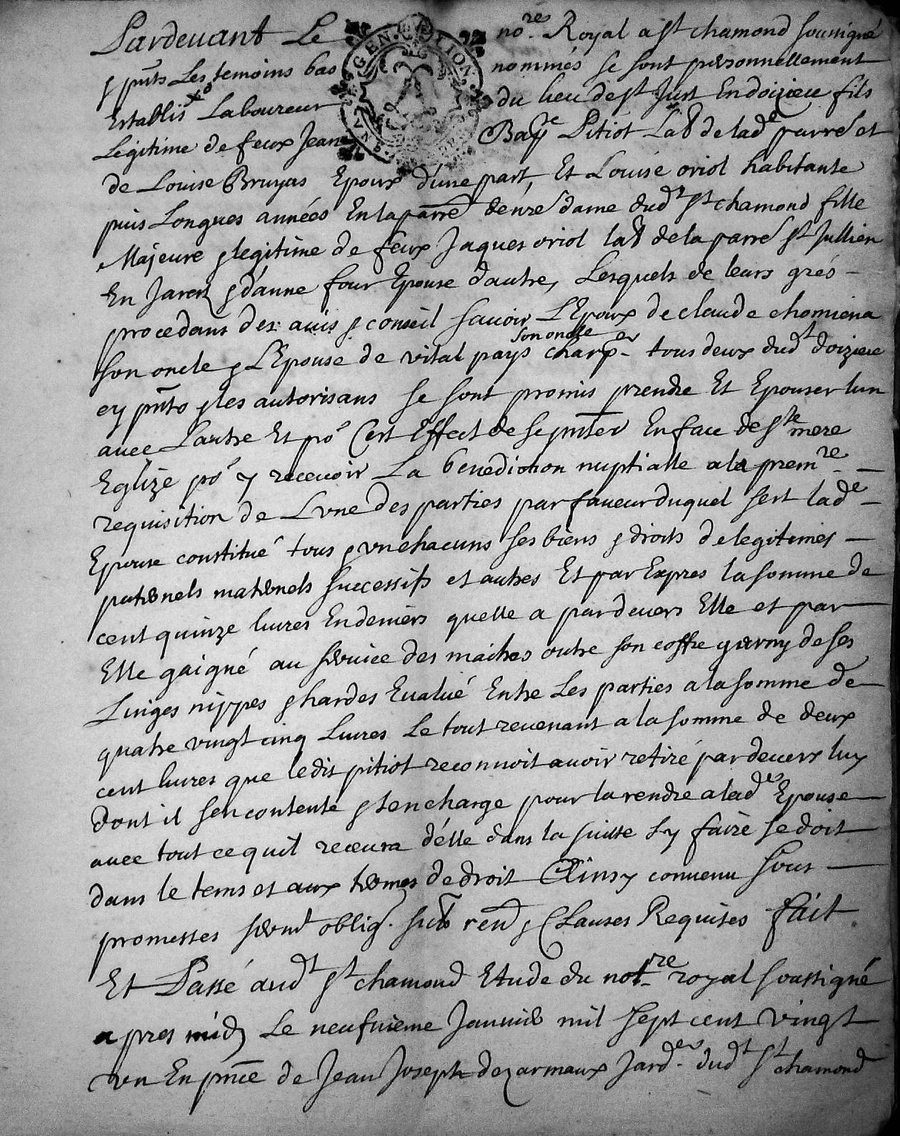 Pardevant Le no.re Royal a St chamond soussigné
& pnts Les temoins bas nommés se sont personnellement
Establis Laboureur du lieu de St Just En doizieu fils
Légitime de feux Jean Bapte Pitiot Lab de lade parre et
de Louise Bruyas Epoux d'une part, Et Louise oriol habitante
puis Longues années En la parre de nre dame dudt St chamond fille
Majeure & legitime de feux Jaques oriol lab de la parre St Jullien
En Jarez & d'anne four Epouse d'autre, Lesquels de leurs grés -
procedans des avis & conseil savoir L'Epoux de claude chomiena
son oncle & L'Epouse de vital pays son oncle charp.er tous deux dudt doizieu
cy pnts & les autorisans se sont promis prendre Et Epouser lun
avec Lautre Et po.r Cert Effect de se pnter En face de Ste mere
Eglize po.r y recevoir La benediction nuptialle a la prem.re -
requisition de L'une des parties par faveur duquel sert lade -
Epouse constitué tous & vnchacuns ses biens & droits de legitimes -
paternels maternels successifs et autres Et par Expres la somme de
cent quinze livres En deniers quelle a pardevers Elle et par
Elle gaigné au service des maitres outre son coffre garny de ses
Linges nippes & hardes Evalué Entre Les parties a la somme de
quatre vingt cinq Livres Le tout revenant a la somme de deux
cent livres que ledit pitiot reconnoit avoir retiré pardevers luy
dont il s'en contente & s'en charge pour la rendre a lade Epouse
avec tout ce quil recevra d'elle dans la suitte S'y faire se doit
dans le tems et aux termes de droit Ainsy convenu sous
promesses sermt oblig. sub rend & Clauses Requises fait
Et Passé audt St chamond Etude du not.re royal soussigné
apres midy Le neufvieme Janvier mil sept cent vingt
vn En pnce de Jean Joseph dezarmaux Jard.er dudt St chamond